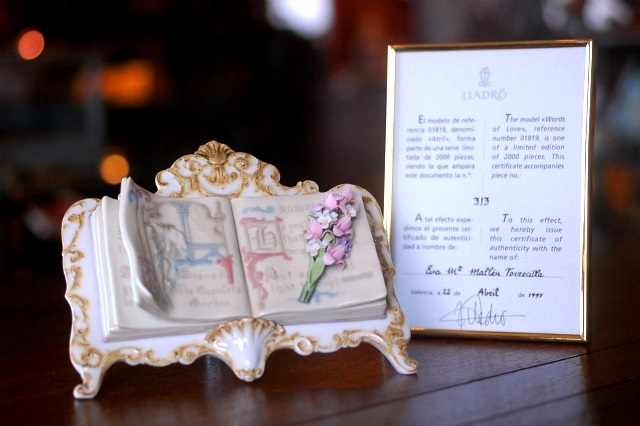 LLADRÓ
El modelo de refe-
rencia 01819, denomi-
nado «Atril», forma
parte de una serie limi-
tada de 2000 piezas,
siendo la que ampara
este documento la n.º:
The model «Words
of Love», reference
number 01819, is one
of a limited edition
of 2000 pieces. This
certificate accompanies
piece no.:
313
A tal efecto expe-
dimos el presente cer-
tificado de autentici-
dad a nombre de:
To this effect,
we hereby issue
this certificate of
authenticity with the
name of:
Eva Mª Mallén Torrecilla
Valencia, a 22 de Abril de 1997